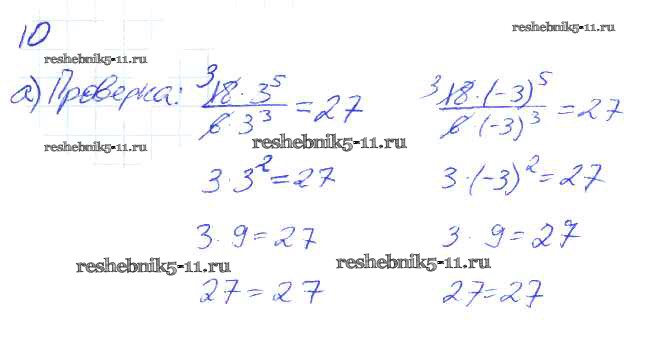 10
reshebnik5-11.ru
reshebnik5-11.ru
а) Проверка: 3 18·3⁵/6·3³ = 27   3 18·(-3)⁵/6·(-3)³ = 27
reshebnik5-11.ru
reshebnik5-11.ru
3·3² = 27   3·(-3)² = 27
3·9 = 27   3·9 = 27
reshebnik5-11.ru   reshebnik5-11.ru
27 = 27   27 = 27